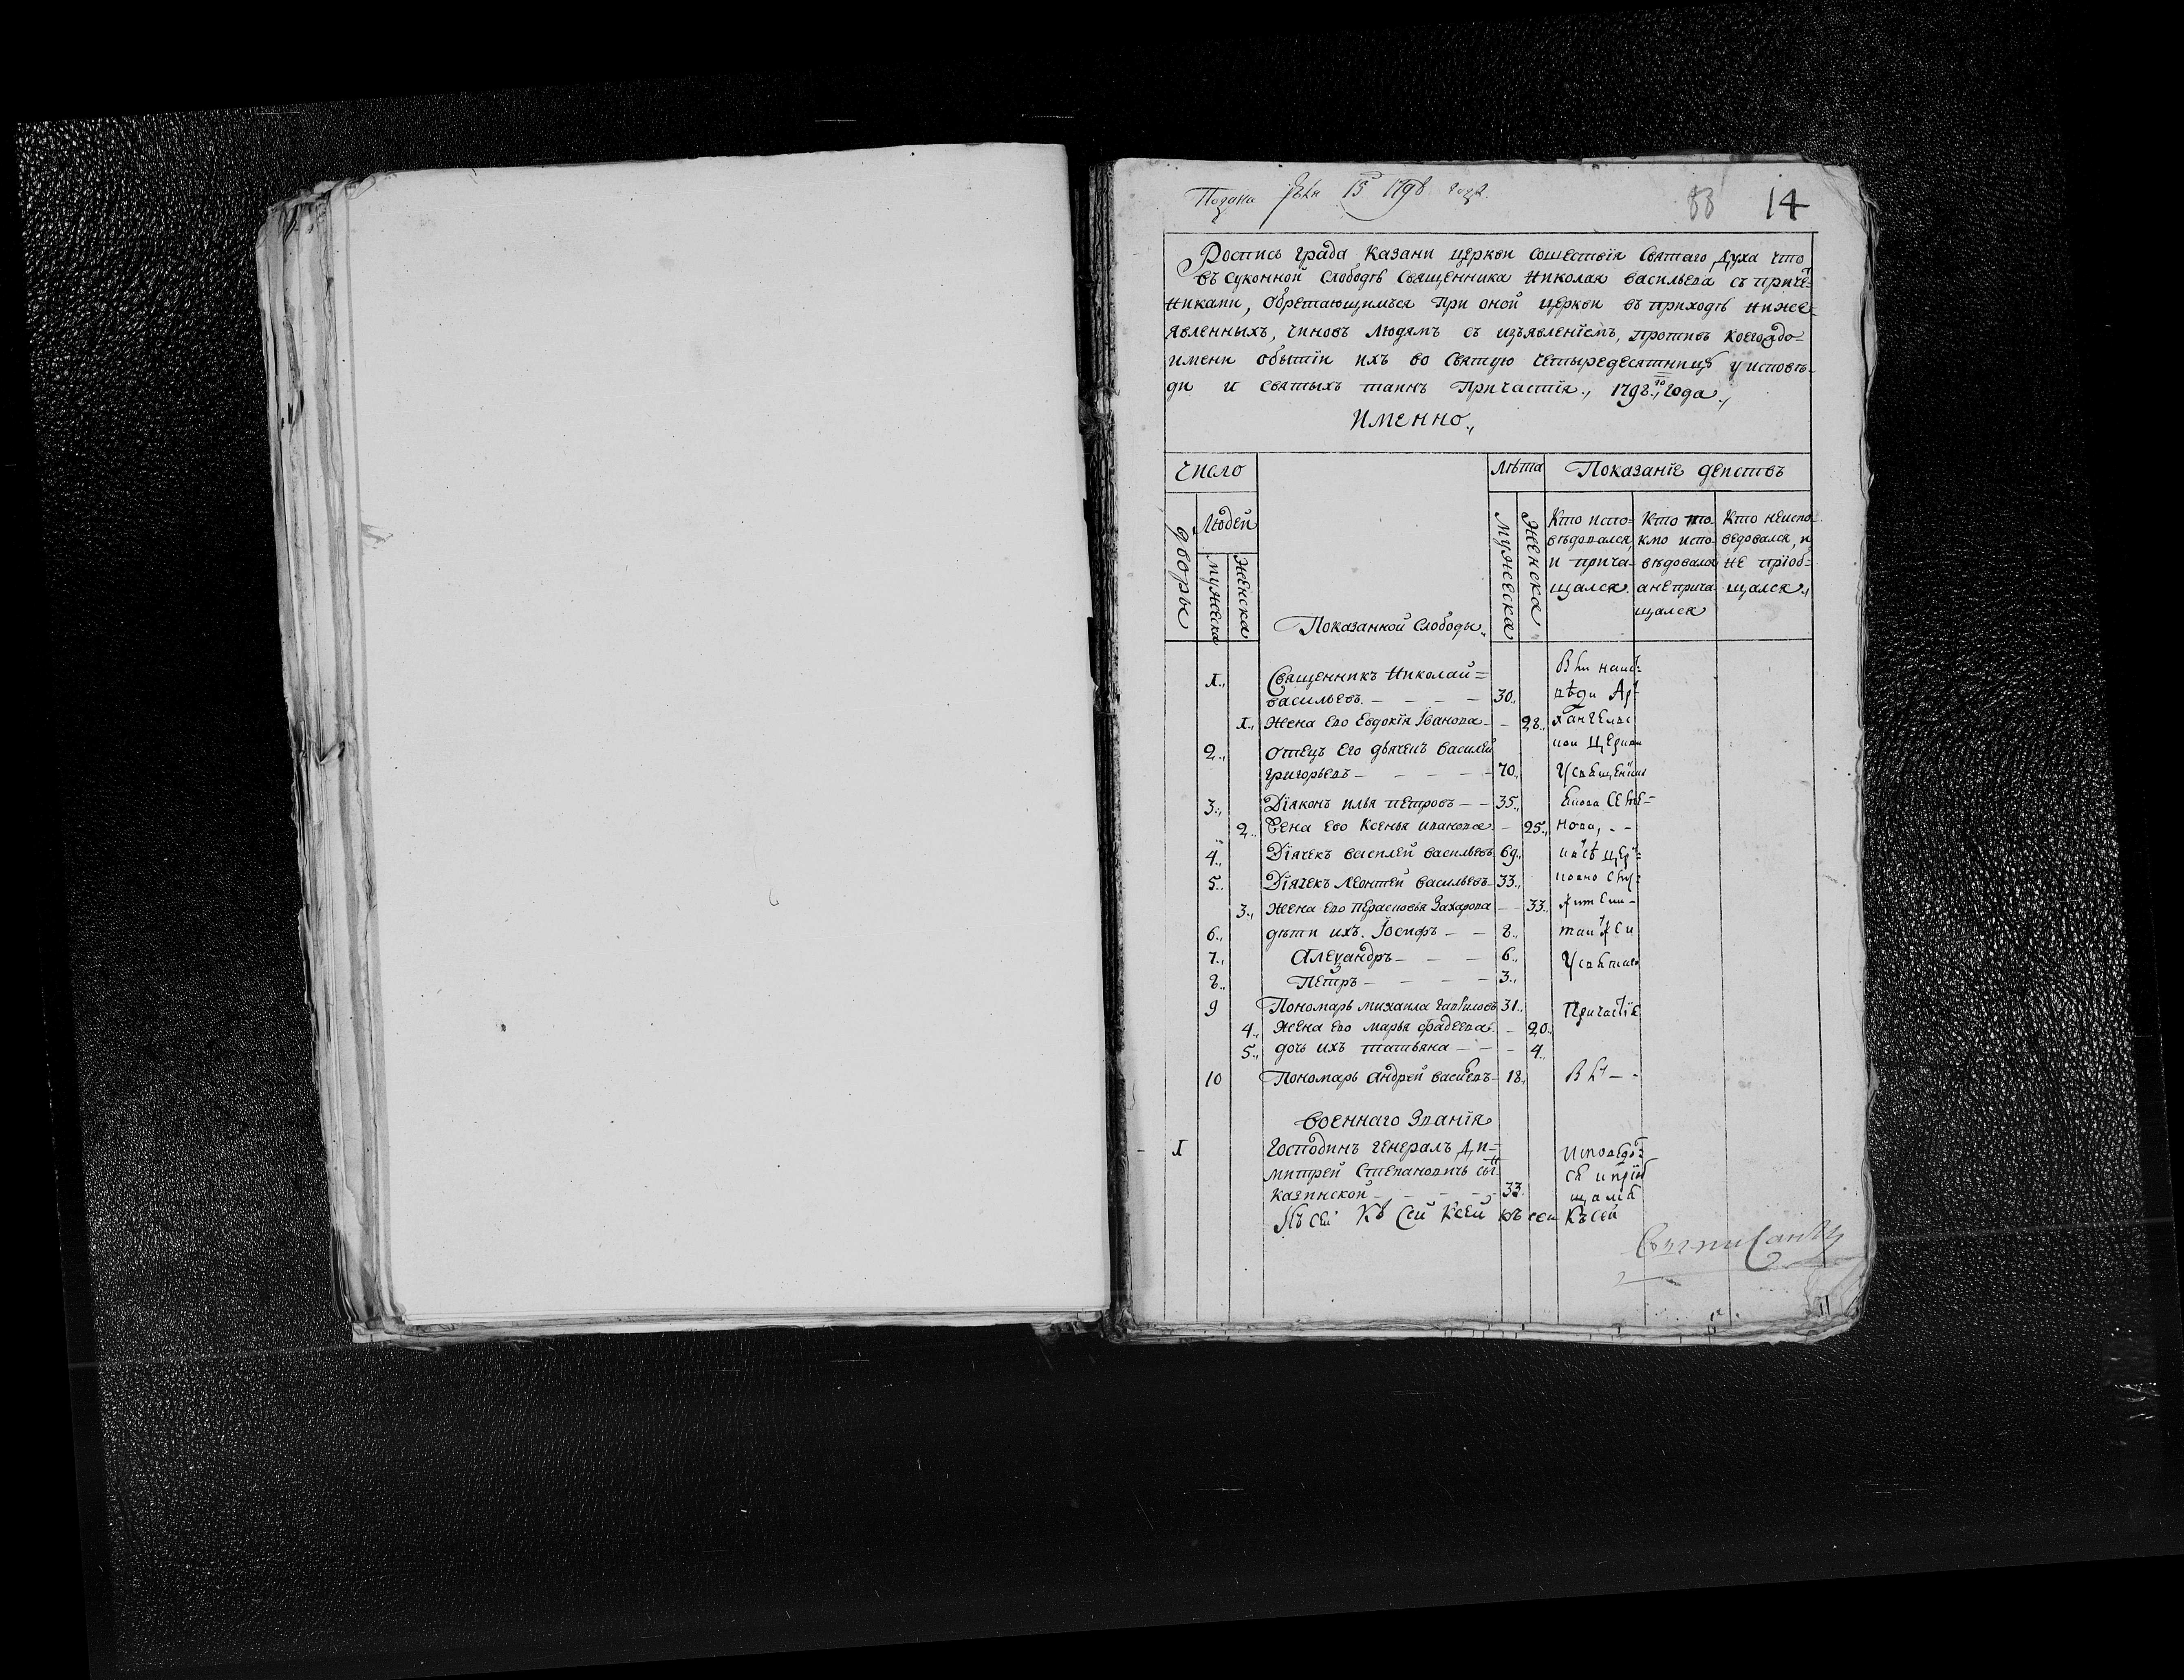 Подана 15 1798 года.
88 14
Роспись града Казани церкви Сошествія Святаго Духа что
въ Суконной Слободѣ Священника Николая Васильева съ приче-
тниками, обретающимъся при оной церкви въ приходѣ ниже-
явленныхъ, чиновъ людямъ съ изъявленіемъ, противъ коегождо
имени о бытіи ихъ во Святую четыредесятницу у исповѣ-
ди и святыхъ таинъ причастія., 1798.го года.,
Именно.,
Число
Лѣта
Показаніе действъ
дворы
Людей
мужеска
женска
Показанной Слободы.,
мужеска
женска
Кто испо-
вѣдовался,
и прича-
щался.
Кто то-
кмо испо-
вѣдовался
а не прича
щался
Кто неиспо-
ведовался, и
не пріоб-
щался.,
1., Священникъ Николай=
Васильевъ. 30.,
1., Жена ево Евдокія Іванова 28.,
2., Отецъ его дьячекъ Василей
Григорьевъ 70.,
3., Діаконъ Илья Петровъ 35.,
2., Жена ево Ксенья Иванова 25.,
4., Дїячекъ Василей Васильевъ 69.,
5., Дїячекъ Леонтей Васильевъ 33.,
3., Жена ево Перасковья Захарова 33.,
6., дѣти ихъ. Іосифъ 8.,
7., Алеѯандръ 6.,
8., Петръ 3.,
9 Пономарь Михаила Гавриловъ 31.,
4., Жена ево Марья Фадеева 20.,
5., дочь ихъ Татьяна 4.,
10 Пономарь Андрей Васильевъ 18.,
церкви
Причастїя
Военнаго Званія
1 Господинъ генералъ Ди-
митрей Степановичь
Казинской 33.
Къ сей Къ сей Ксей къ сей Къ сей